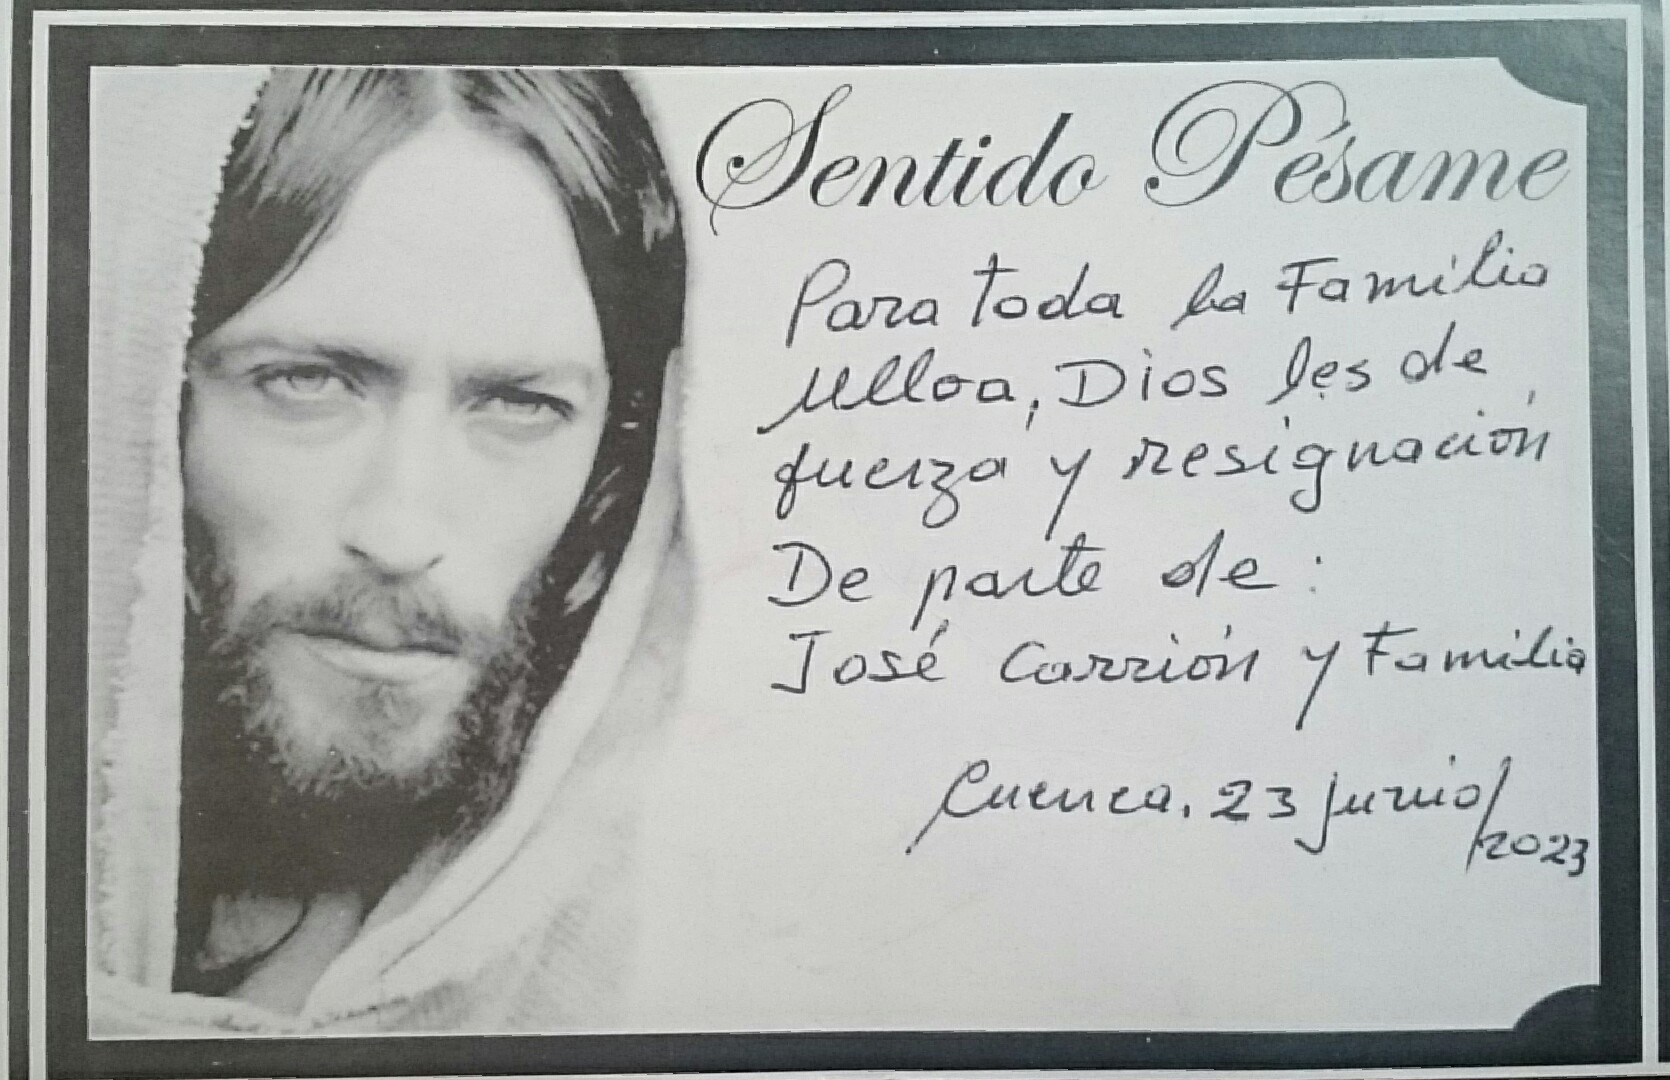 Sentido Pésame
Para toda la Familia
Ulloa, Dios les de
fuerza y resignación
De parte de:
José Carrión y Familia
Cuenca, 23 junio/
2023